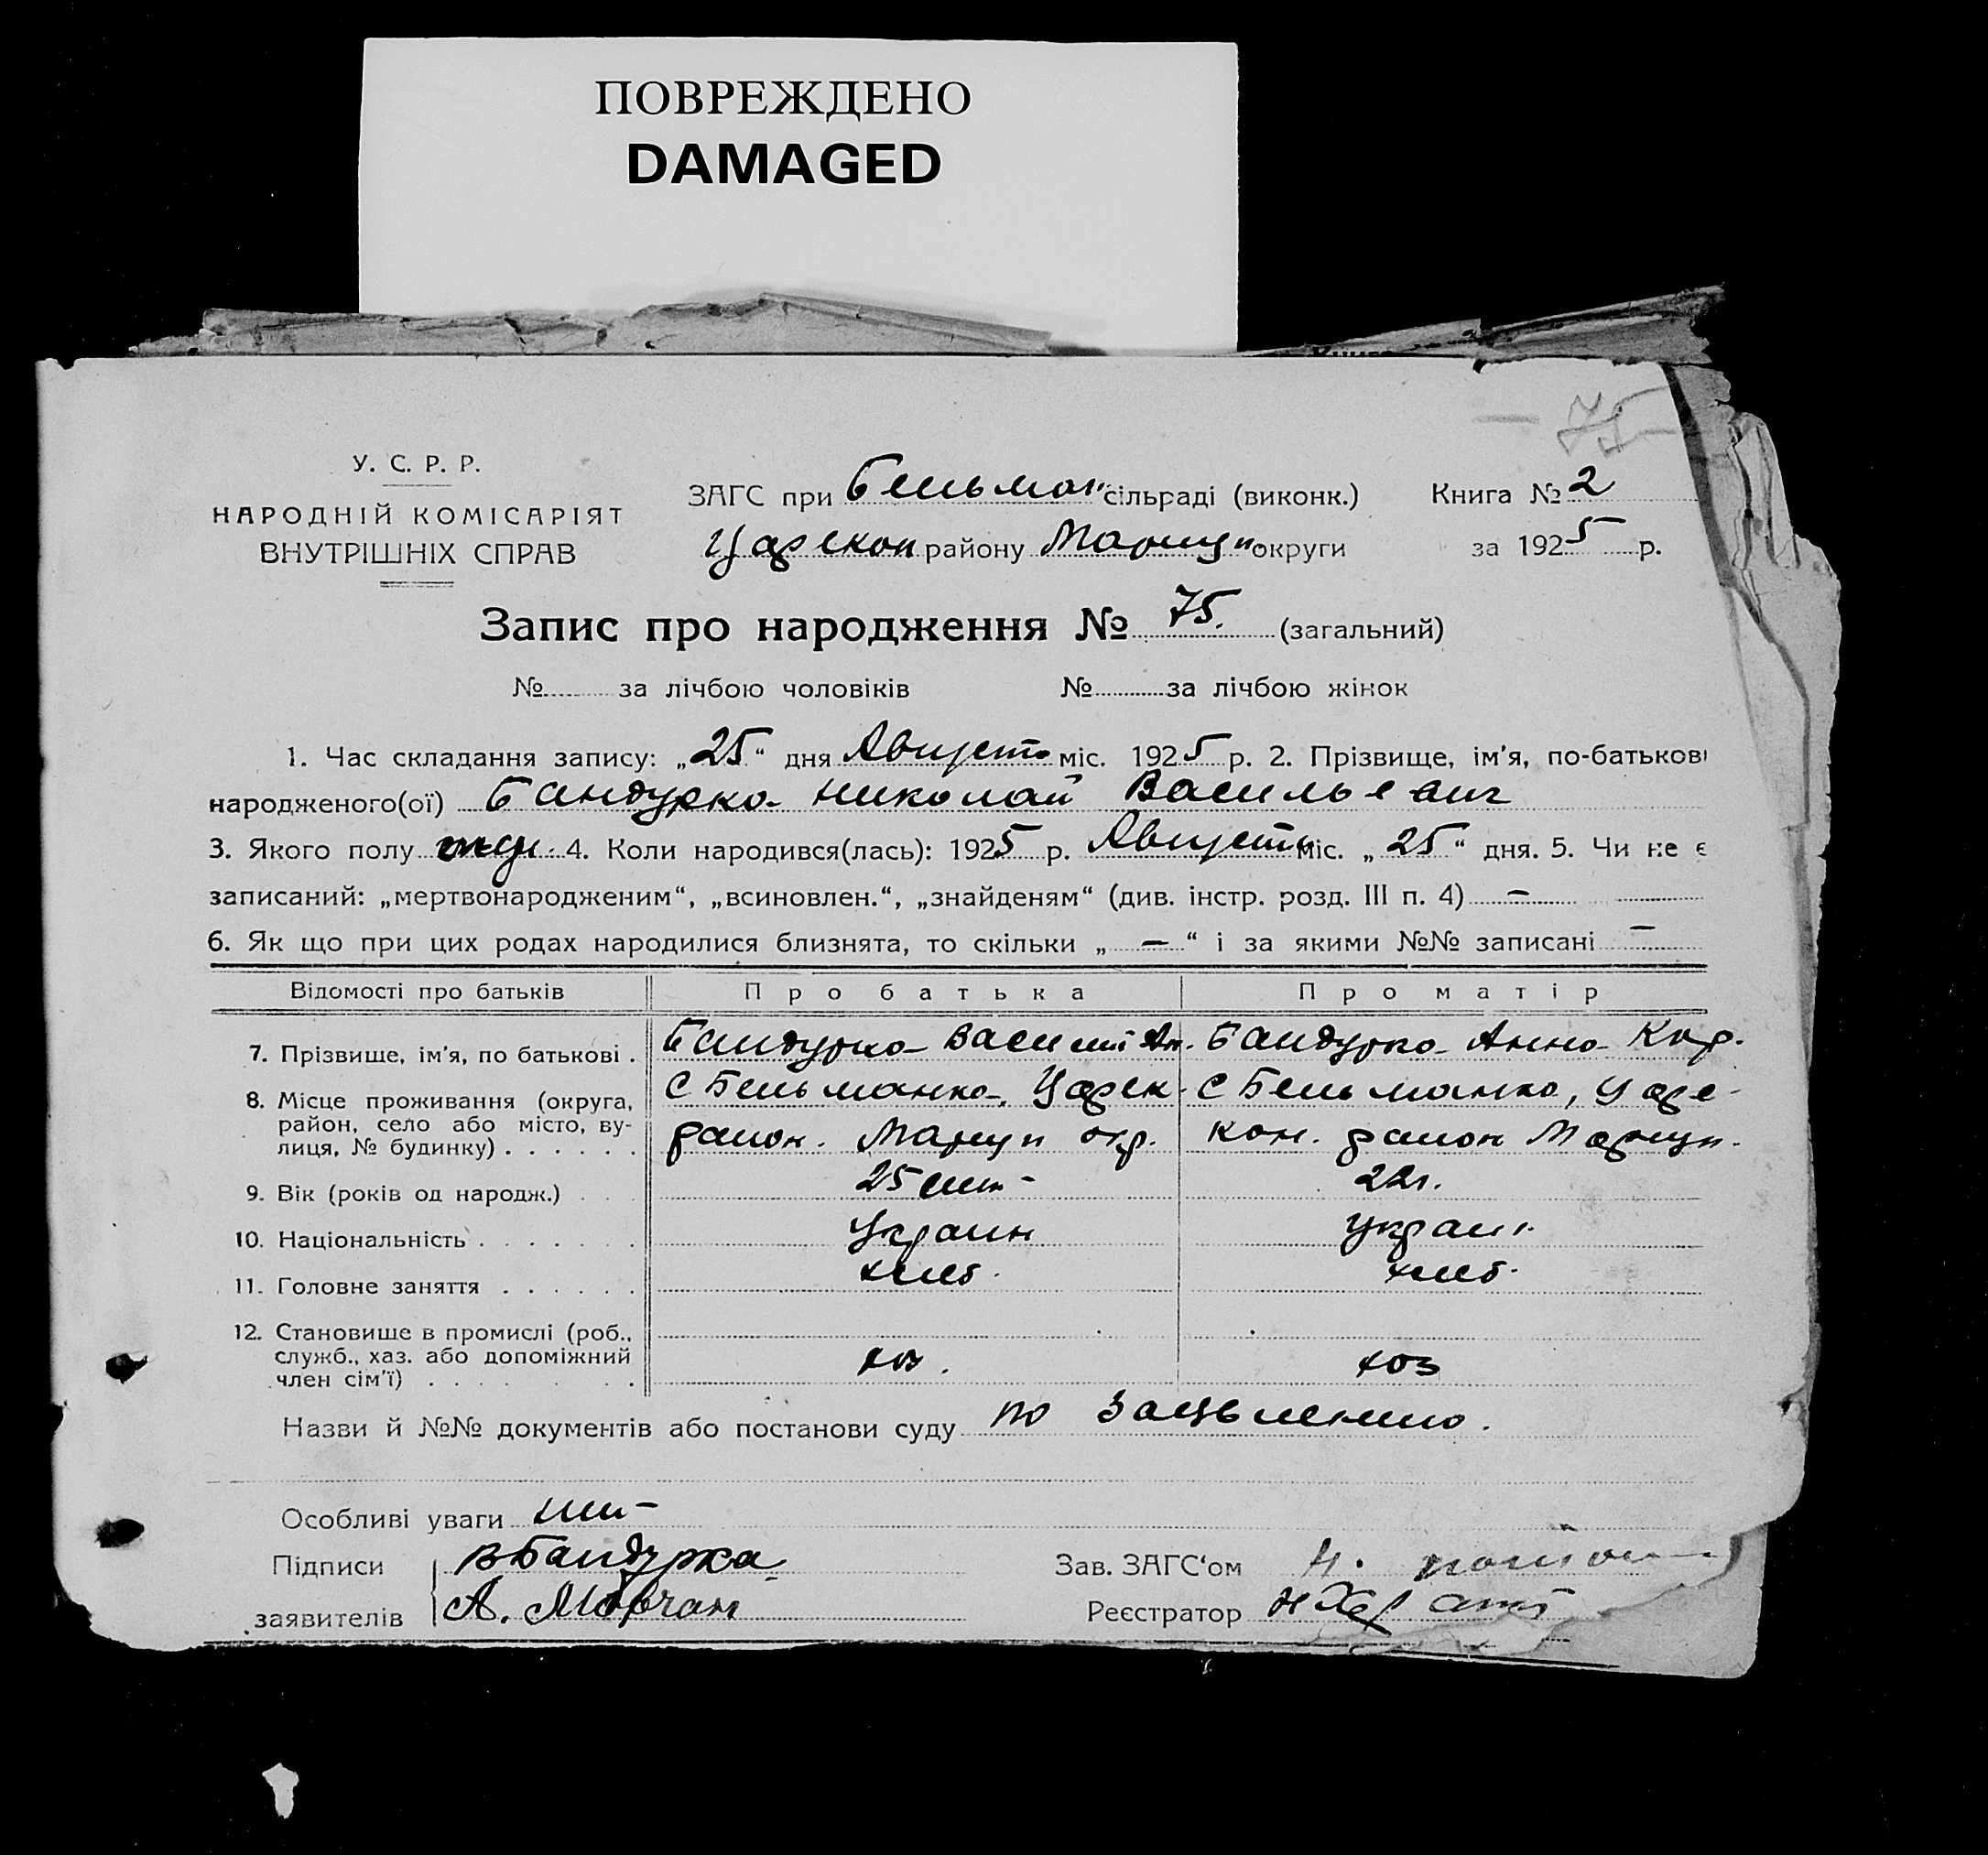 ПОВРЕЖДЕНО
DAMAGED
75
У. С. Р. Р.
НАРОДНІЙ КОМІСАРІЯТ
ВНУТРІШНІХ СПРАВ
ЗАГС при Бельман сільраді (виконк.) Книга № 2
Царекон району Мариуп. округи за 1925 р.
Запис про народження № 75. (загальний)
№ за лічбою чоловіків № за лічбою жінок
1. Час складання запису: „25“ дня Августа міс. 1925 р. 2. Прізвище, ім’я, по-батькові
народженого(ої) Бандурка Николай Васильевич
3. Якого полу 4. Коли народився(лась): 1925 р. Августа міс. „25“ дня. 5. Чи не є
записаний: „мертвонародженим“, „всиновлен.“, „знайденям“ (див. інстр. розд. III п. 4) –
6. Як що при цих родах народилися близнята, то скільки „ – “ і за якими №№ записані –
Відомості про батьків Про батька Про матір
7. Прізвище, ім’я, по батькові . Бандурка Василий Ан. Бандурка Анна Кир.
8. Місце проживання (округа, район, село або місто, вулиця, № будинку) . . . . . . С Бельманка, Царек. район. Мариуп окр. С Бельманка, Царекон. район Мариуп.
9. Вік (років од народж.) . . . 25 лет – 22 г.
10. Національність . . . . . . . Украин Украин.
11. Головне заняття . . . . . . хлеб. хлеб.
12. Становище в промислі (роб., служб., хаз. або допоміжний член сім’ї) . . . . . хоз. хоз
Назви й №№ документів або постанови суду по заявлению.
Особливі уваги нет –
Підписи В Бандурка Зав. ЗАГС‘ом
заявителів А. Мовчан Реєстратор